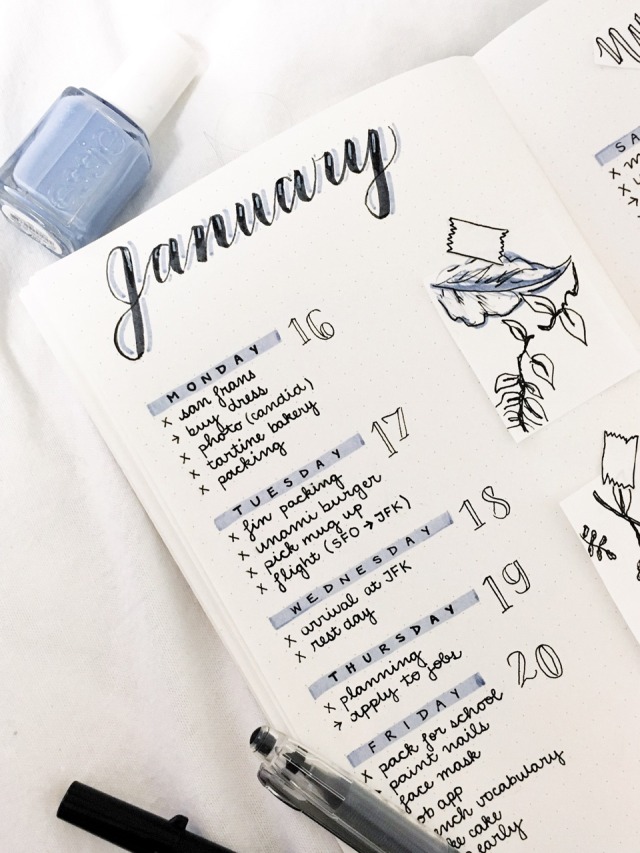 essie
january
MONDAY 16
x san frans
> buy dress
x photo (candid)
x tartine bakery
x packing
TUESDAY 17
x fin packing
x unami burger
x pick mug up
x flight (SFO → JFK)
WEDNESDAY 18
x arrival at JFK
x rest day
THURSDAY 19
x planning
> apply to jobs
FRIDAY 20
x pack for school
> paint nails
face mask
ob app
ench vocabulary
ke cake
early
SA
x
x